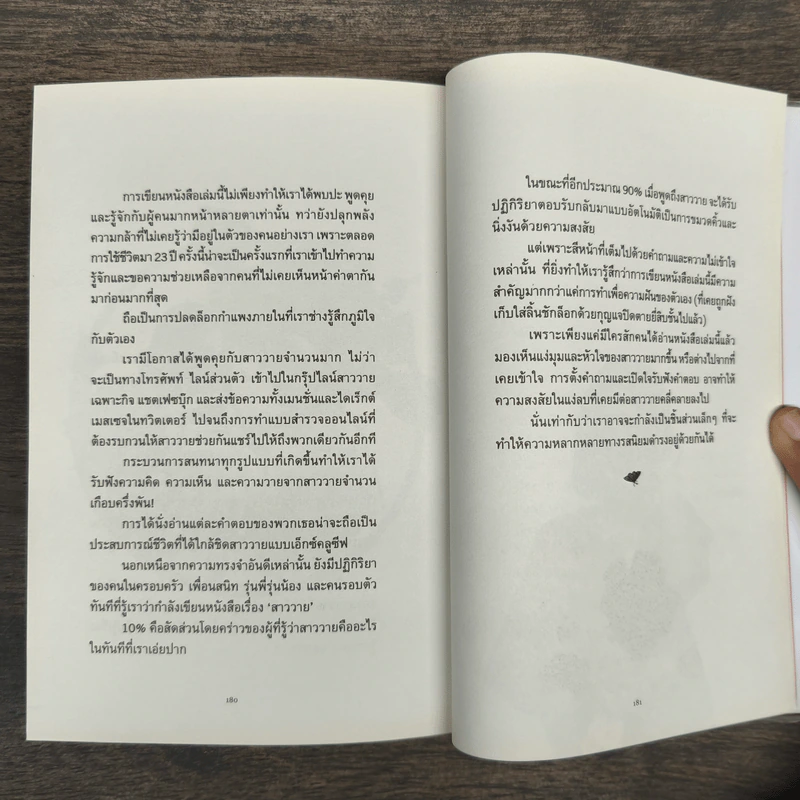 การเขียนหนังสือเล่มนี้ไม่เพียงทำให้เราได้พบปะ พูดคุย
และรู้จักกับผู้คนมากหน้าหลายตาเท่านั้น ทว่ายังปลุกพลัง
ความกล้าที่ไม่เคยรู้ว่ามีอยู่ในตัวของคนอย่างเรา เพราะตลอด
การใช้ชีวิตมา 23 ปี ครั้งนี้น่าจะเป็นครั้งแรกที่เราเข้าไปทำความ
รู้จักและขอความช่วยเหลือจากคนที่ไม่เคยเห็นหน้าค่าตากัน
มาก่อนมากที่สุด
ถือเป็นการปลดล็อกกำแพงภายในที่เราช่างรู้สึกภูมิใจ
กับตัวเอง
เรามีโอกาสได้พูดคุยกับสาววายจำนวนมาก ไม่ว่า
จะเป็นทางโทรศัพท์ ไลน์ส่วนตัว เข้าไปในกรุ๊ปไลน์สาววาย
เฉพาะกิจ แชตเฟซบุ๊ก และส่งข้อความทั้งเมนชั่นและไดเร็กต์
เมสเซจในทวิตเตอร์ ไปจนถึงการทำแบบสำรวจออนไลน์ที่
ต้องรบกวนให้สาววายช่วยกันแชร์ไปให้ถึงพวกเดียวกันอีกที
กระบวนการสนทนาทุกรูปแบบที่เกิดขึ้นทำให้เราได้
รับฟังความคิด ความเห็น และความวายจากสาววายจำนวน
เกือบครึ่งพัน!
การได้นั่งอ่านแต่ละคำตอบของพวกเธอน่าจะถือเป็น
ประสบการณ์ชีวิตที่ได้ใกล้ชิดสาววายแบบเอ็กซ์คลูซีฟ
นอกเหนือจากความทรงจำอันดีเหล่านั้น ยังมีปฏิกิริยา
ของคนในครอบครัว เพื่อนสนิท รุ่นพี่รุ่นน้อง และคนรอบตัว
ทันทีที่รู้เราว่ากำลังเขียนหนังสือเรื่อง ‘สาววาย’
10% คือสัดส่วนโดยคร่าวของผู้ที่รู้ว่าสาววายคืออะไร
ในทันทีที่เราเอ่ยปาก
180
ในขณะที่อีกประมาณ 90% เมื่อพูดถึงสาววาย จะได้รับ
ปฏิกิริยาตอบรับกลับมาแบบอัตโนมัติเป็นการขมวดคิ้วและ
นิ่งงันด้วยความสงสัย
แต่เพราะสีหน้าที่เต็มไปด้วยคำถามและความไม่เข้าใจ
เหล่านั้น ที่ยิ่งทำให้เรารู้สึกว่าการเขียนหนังสือเล่มนี้มีความ
สำคัญมากกว่าแค่การทำเพื่อความฝันของตัวเอง (ที่เคยถูกฝัง
เก็บใส่ลิ้นชักล็อกด้วยกุญแจปิดตายยี่สิบชั้นไปแล้ว)
เพราะเพียงแค่มีใครสักคนได้อ่านหนังสือเล่มนี้แล้ว
มองเห็นแง่มุมและหัวใจของสาววายมากขึ้น หรือต่างไปจากที่
เคยเข้าใจ การตั้งคำถามและเปิดใจรับฟังคำตอบ อาจทำให้
ความสงสัยในแง่ลบที่เคยมีต่อสาววายคลี่คลายลงไป
นั่นเท่ากับว่าเราอาจจะกำลังเป็นชิ้นส่วนเล็กๆ ที่จะ
ทำให้ความหลากหลายทางรสนิยมดำรงอยู่ด้วยกันได้
181